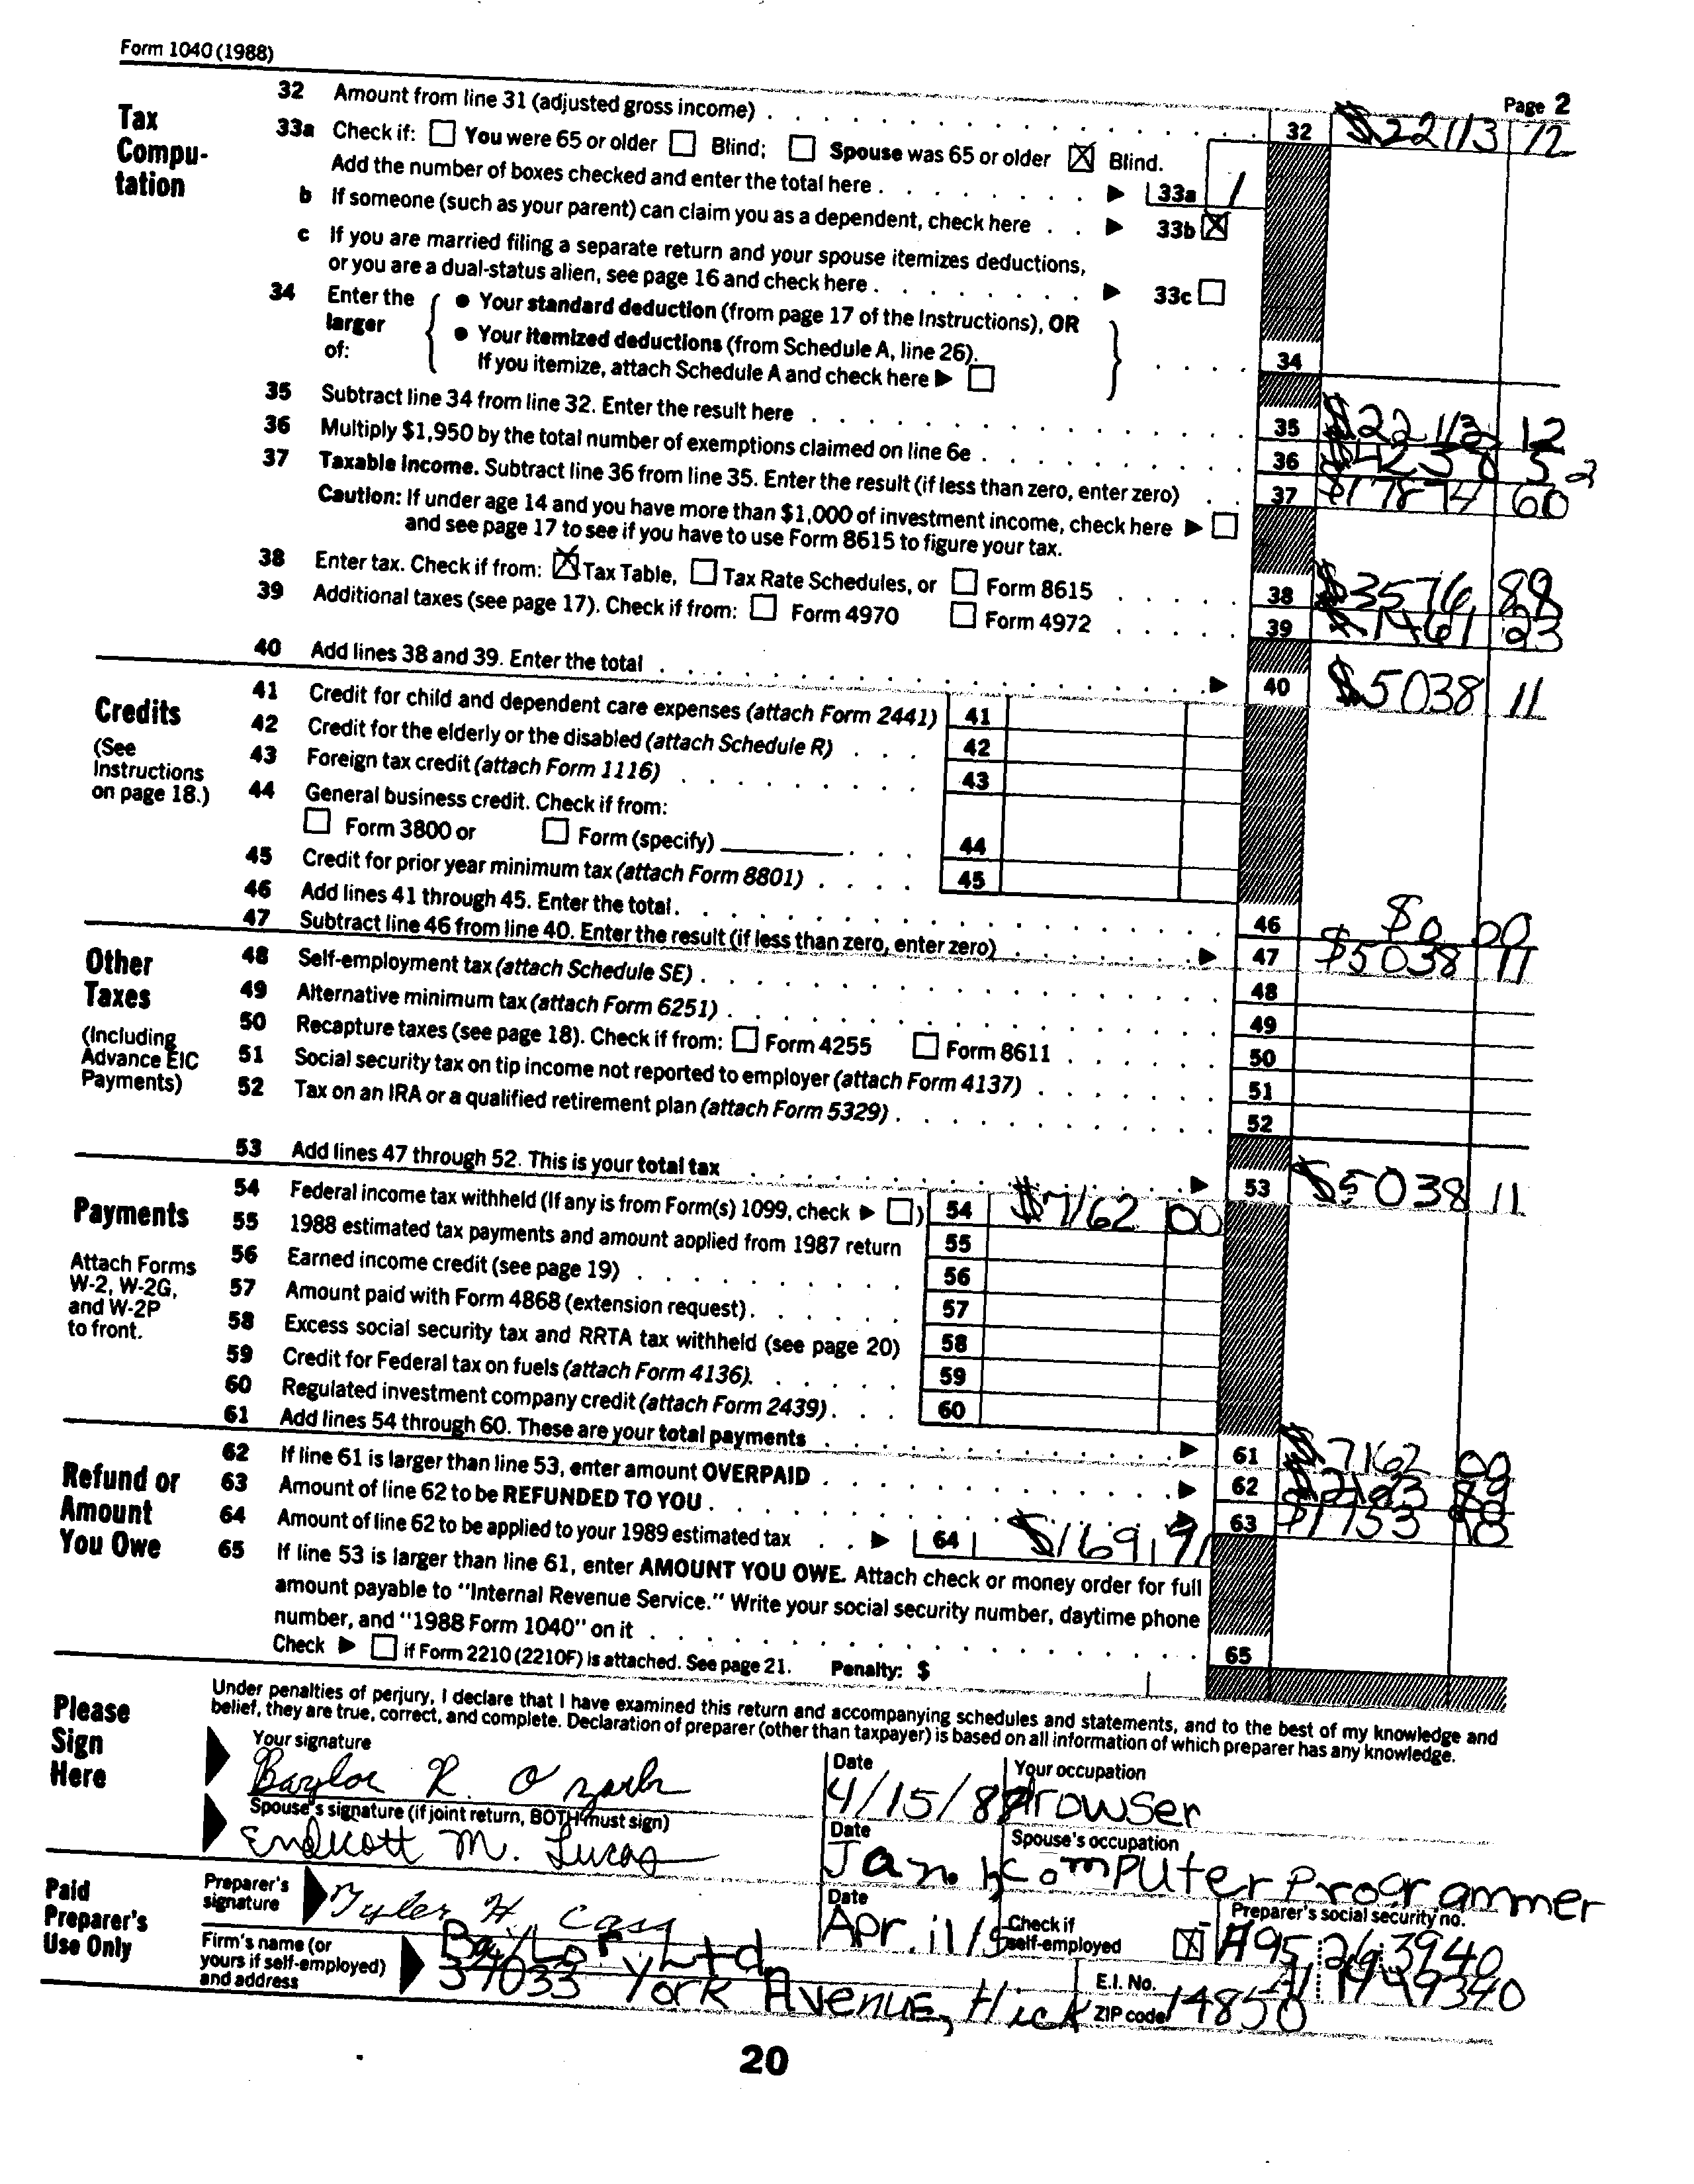 Form 1040 (1988)
Page 2
Tax Compu-tation
32 Amount from line 31 (adjusted gross income) 32 $22113 12
33a Check if: You were 65 or older Blind; Spouse was 65 or older X Blind.
Add the number of boxes checked and enter the total here 33a 1
b If someone (such as your parent) can claim you as a dependent, check here 33b X
c If you are married filing a separate return and your spouse itemizes deductions,
or you are a dual-status alien, see page 16 and check here 33c
34 Enter the larger of:
• Your standard deduction (from page 17 of the Instructions), OR
• Your itemized deductions (from Schedule A, line 26).
If you itemize, attach Schedule A and check here 34
35 Subtract line 34 from line 32. Enter the result here 35 $22113 12
36 Multiply $1,950 by the total number of exemptions claimed on line 6e 36
37 Taxable income. Subtract line 36 from line 35. Enter the result (if less than zero, enter zero) 37 $17874 60
Caution: If under age 14 and you have more than $1,000 of investment income, check here
and see page 17 to see if you have to use Form 8615 to figure your tax.
38 Enter tax. Check if from: X Tax Table, Tax Rate Schedules, or Form 8615 38 $3576 88
39 Additional taxes (see page 17). Check if from: Form 4970 Form 4972 39 $1461 23
40 Add lines 38 and 39. Enter the total 40 $5038 11
Credits
(See Instructions on page 18.)
41 Credit for child and dependent care expenses (attach Form 2441) 41
42 Credit for the elderly or the disabled (attach Schedule R) 42
43 Foreign tax credit (attach Form 1116) 43
44 General business credit. Check if from:
Form 3800 or Form (specify) 44
45 Credit for prior year minimum tax (attach Form 8801) 45
46 Add lines 41 through 45. Enter the total. 46 $0 00
47 Subtract line 46 from line 40. Enter the result (if less than zero, enter zero) 47 $5038 11
Other Taxes
(Including Advance EIC Payments)
48 Self-employment tax (attach Schedule SE) 48
49 Alternative minimum tax (attach Form 6251) 49
50 Recapture taxes (see page 18). Check if from: Form 4255 Form 8611 50
51 Social security tax on tip income not reported to employer (attach Form 4137) 51
52 Tax on an IRA or a qualified retirement plan (attach Form 5329) 52
53 Add lines 47 through 52. This is your total tax 53 $5038 11
Payments
Attach Forms W-2, W-2G, and W-2P to front.
54 Federal income tax withheld (If any is from Form(s) 1099, check ) 54 $7162 00
55 1988 estimated tax payments and amount applied from 1987 return 55
56 Earned income credit (see page 19) 56
57 Amount paid with Form 4868 (extension request) 57
58 Excess social security tax and RRTA tax withheld (see page 20) 58
59 Credit for Federal tax on fuels (attach Form 4136). 59
60 Regulated investment company credit (attach Form 2439) 60
61 Add lines 54 through 60. These are your total payments 61 $7162 00
Refund or Amount You Owe
62 If line 61 is larger than line 53, enter amount OVERPAID 62
63 Amount of line 62 to be REFUNDED TO YOU 63
64 Amount of line 62 to be applied to your 1989 estimated tax 64
65 If line 53 is larger than line 61, enter AMOUNT YOU OWE. Attach check or money order for full
amount payable to "Internal Revenue Service." Write your social security number, daytime phone
number, and "1988 Form 1040" on it
Check if Form 2210 (2210F) is attached. See page 21. Penalty: $ 65
Please Sign Here
Under penalties of perjury, I declare that I have examined this return and accompanying schedules and statements, and to the best of my knowledge and
belief, they are true, correct, and complete. Declaration of preparer (other than taxpayer) is based on all information of which preparer has any knowledge.
Your signature Date Your occupation
Baylor R. Ozark 4/15/88
Spouse's signature (if joint return, BOTH must sign) Date Spouse's occupation
Endicott M. Lucas Jan. Computer Programmer
Paid Preparer's Use Only
Preparer's signature Tyler H Cass Date Check if self-employed X Preparer's social security no.
Firm's name (or yours if self-employed) and address Ltd. E.I. No.
York Avenue, Hick ZIP code 14850
20